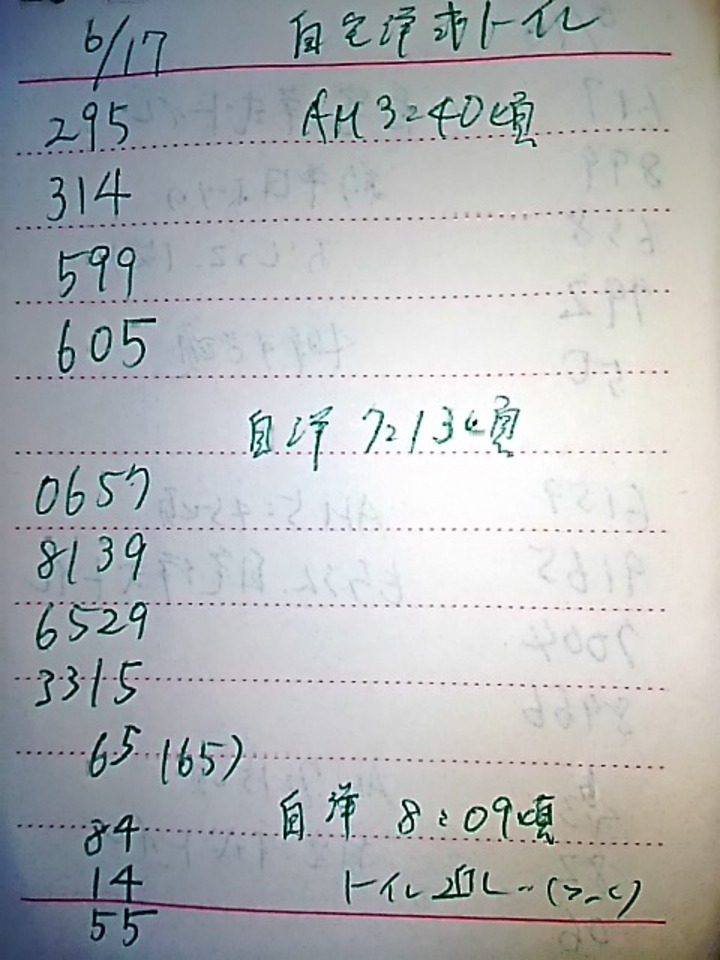 6/17 自宅洋式トイレ
295 AM3:40頃
314
599
605
自洋 7:13頃
0657
8139
6529
3315
65 (65)
自洋 8:09頃
84
14 トイレ近し‥(>_<)
55